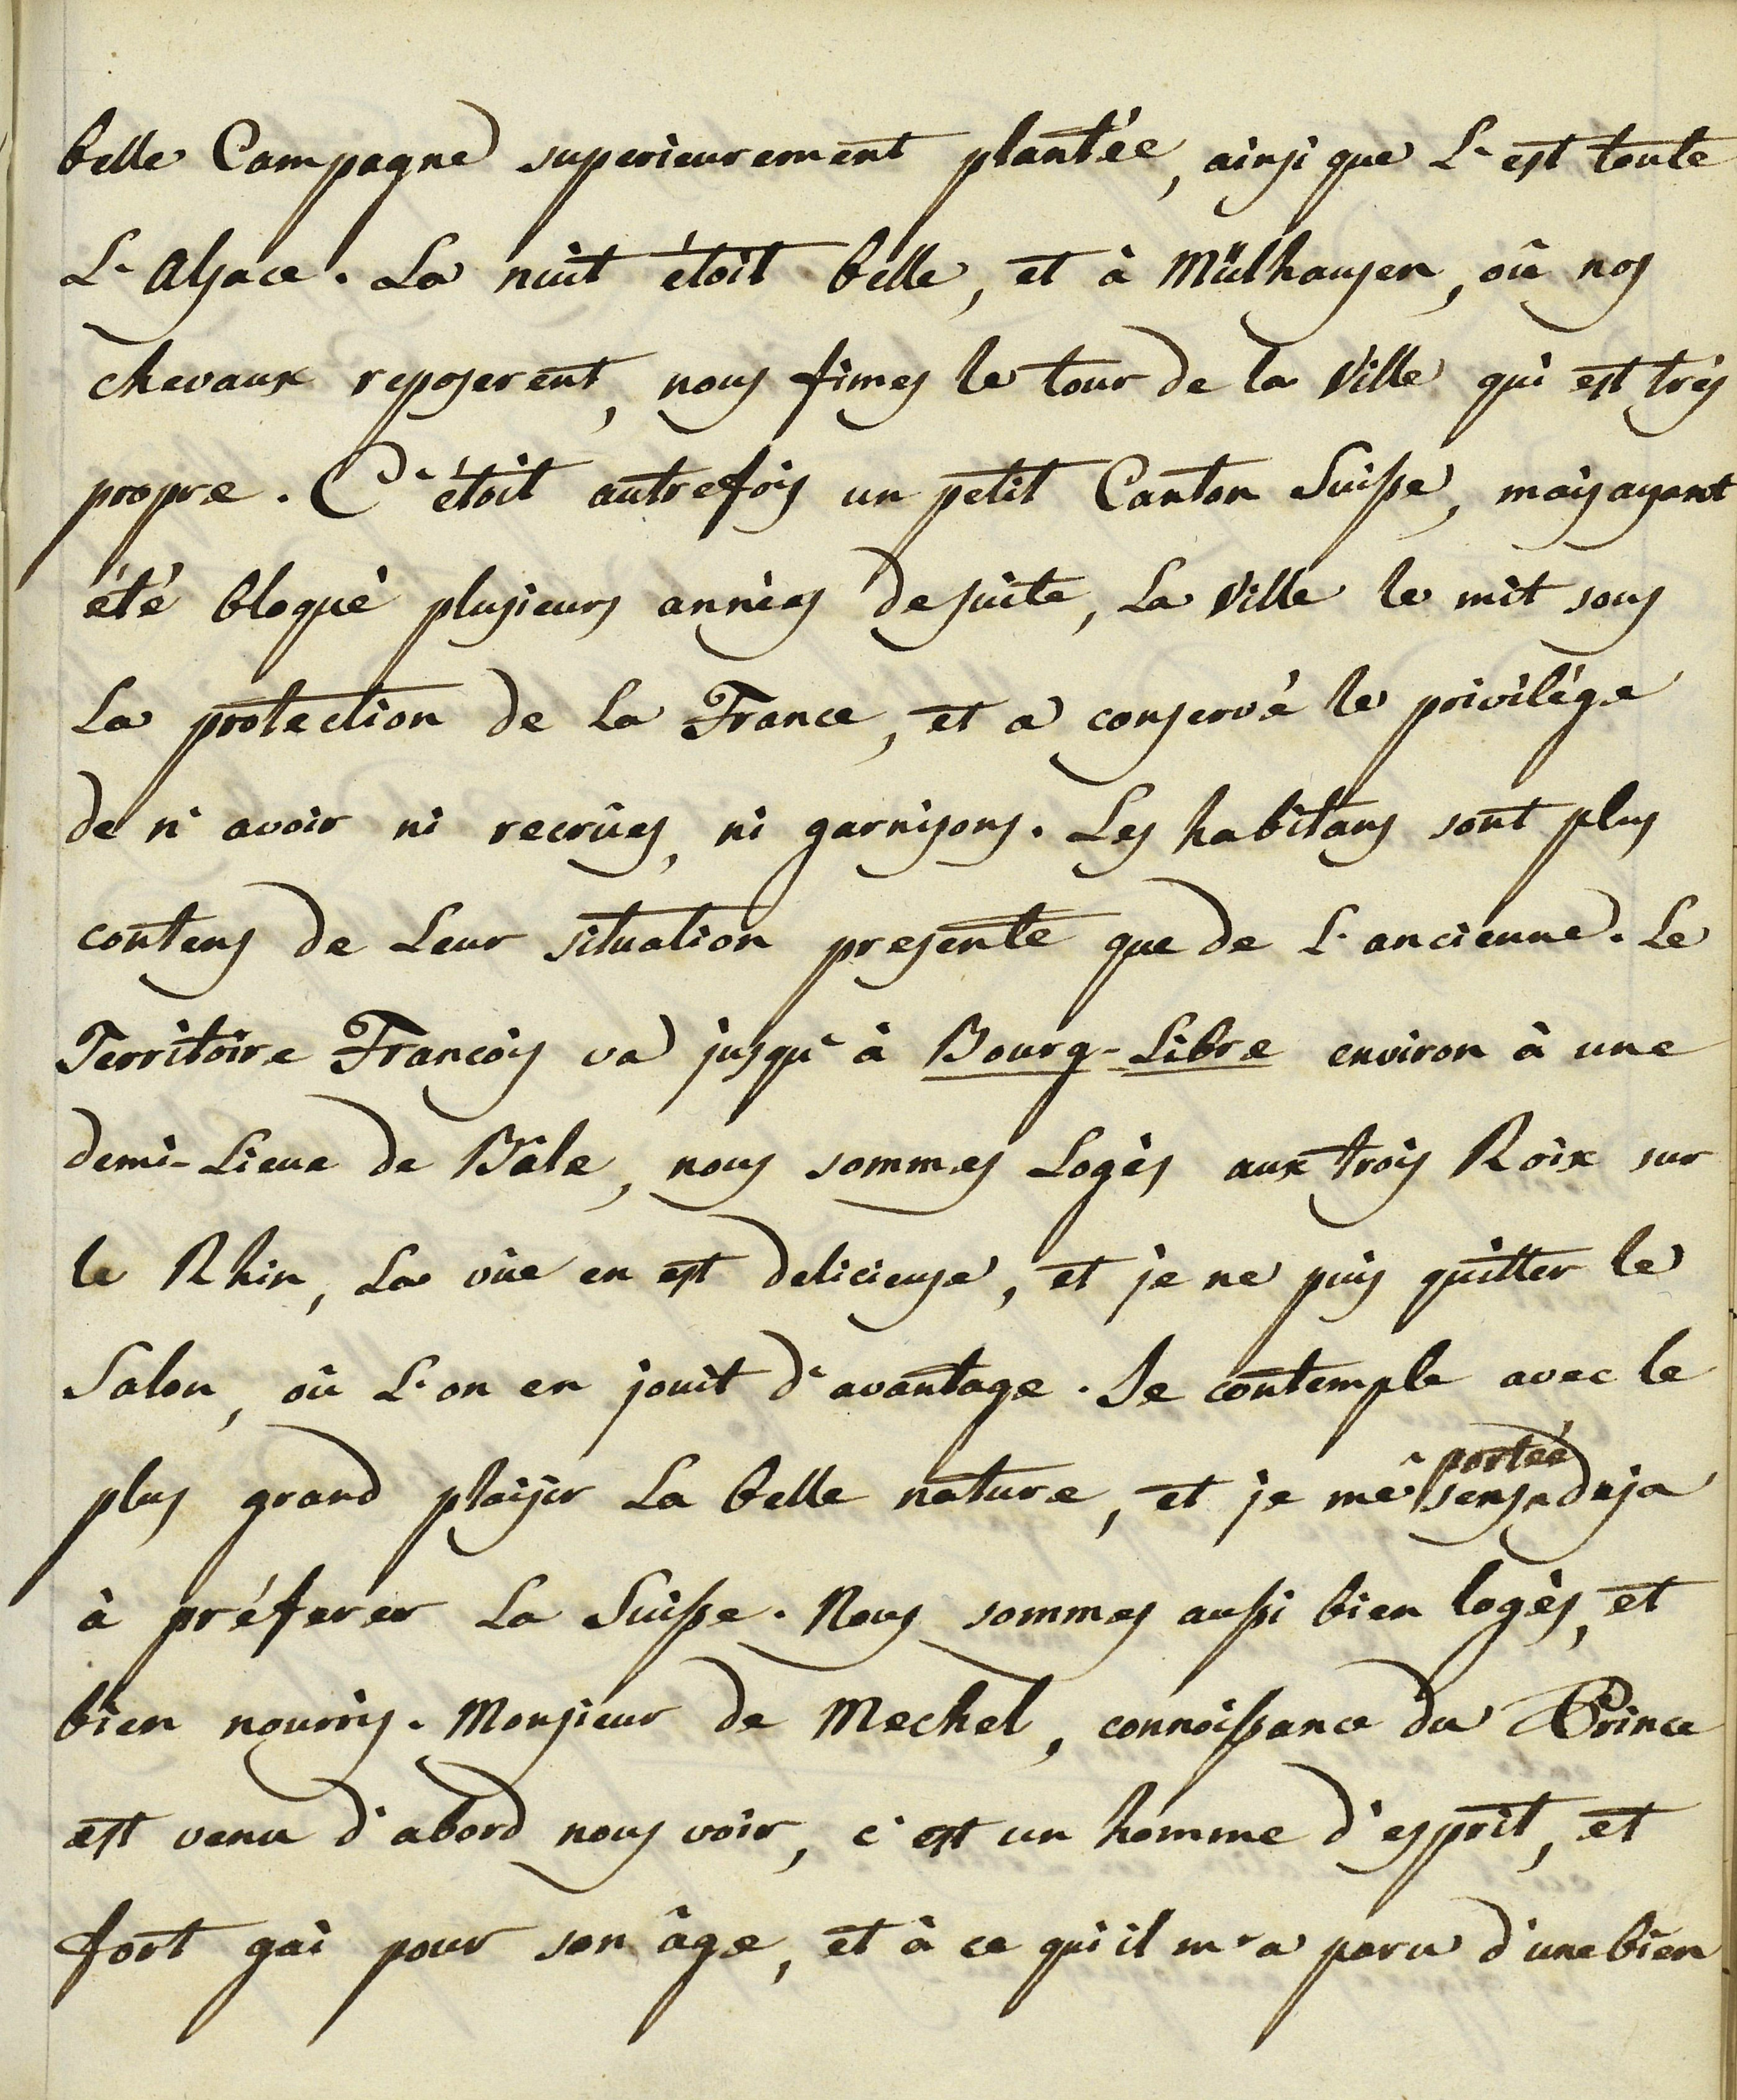 belle Campagne superieurement plantée, ainsi que L'est toute
L'Alsace. La nuit étoit belle, et à Mülhausen, où nos
chevaux reposerent, nous fimes le tour de la Ville qui est très
propre. C'étoit autrefois un petit Canton Suisse, mais ayant
été bloqué plusieurs années desuite, La Ville le mit sous
La protection de La France, et a conservé le privilége
de n'avoir ni recrûes, ni garnisons. Les habitans sont plus
contens de Leur situation presente que de L'ancienne. Le
Territoire François va jusqu'à Bourg-Libre environ à une
demi-Lieue de Bâle, nous sommes Logés aux trois Roix sur
le Rhin, La vûe en est delicieuse, et je ne puis quitter le
Salon, où L'on en jouit d'avantage. Je contemple avec le
plus grand plaisir La belle nature, et je me sens portée deja
à préferer La Suisse. Nous sommes aussi bien logés, et
bien nourris. Monsieur de Mechel, connoissance du Prince
est venu d'abord nous voir, c'est un homme d'esprit, et
fort gai pour son âge, et à ce qu'il m'a paru d'une bien